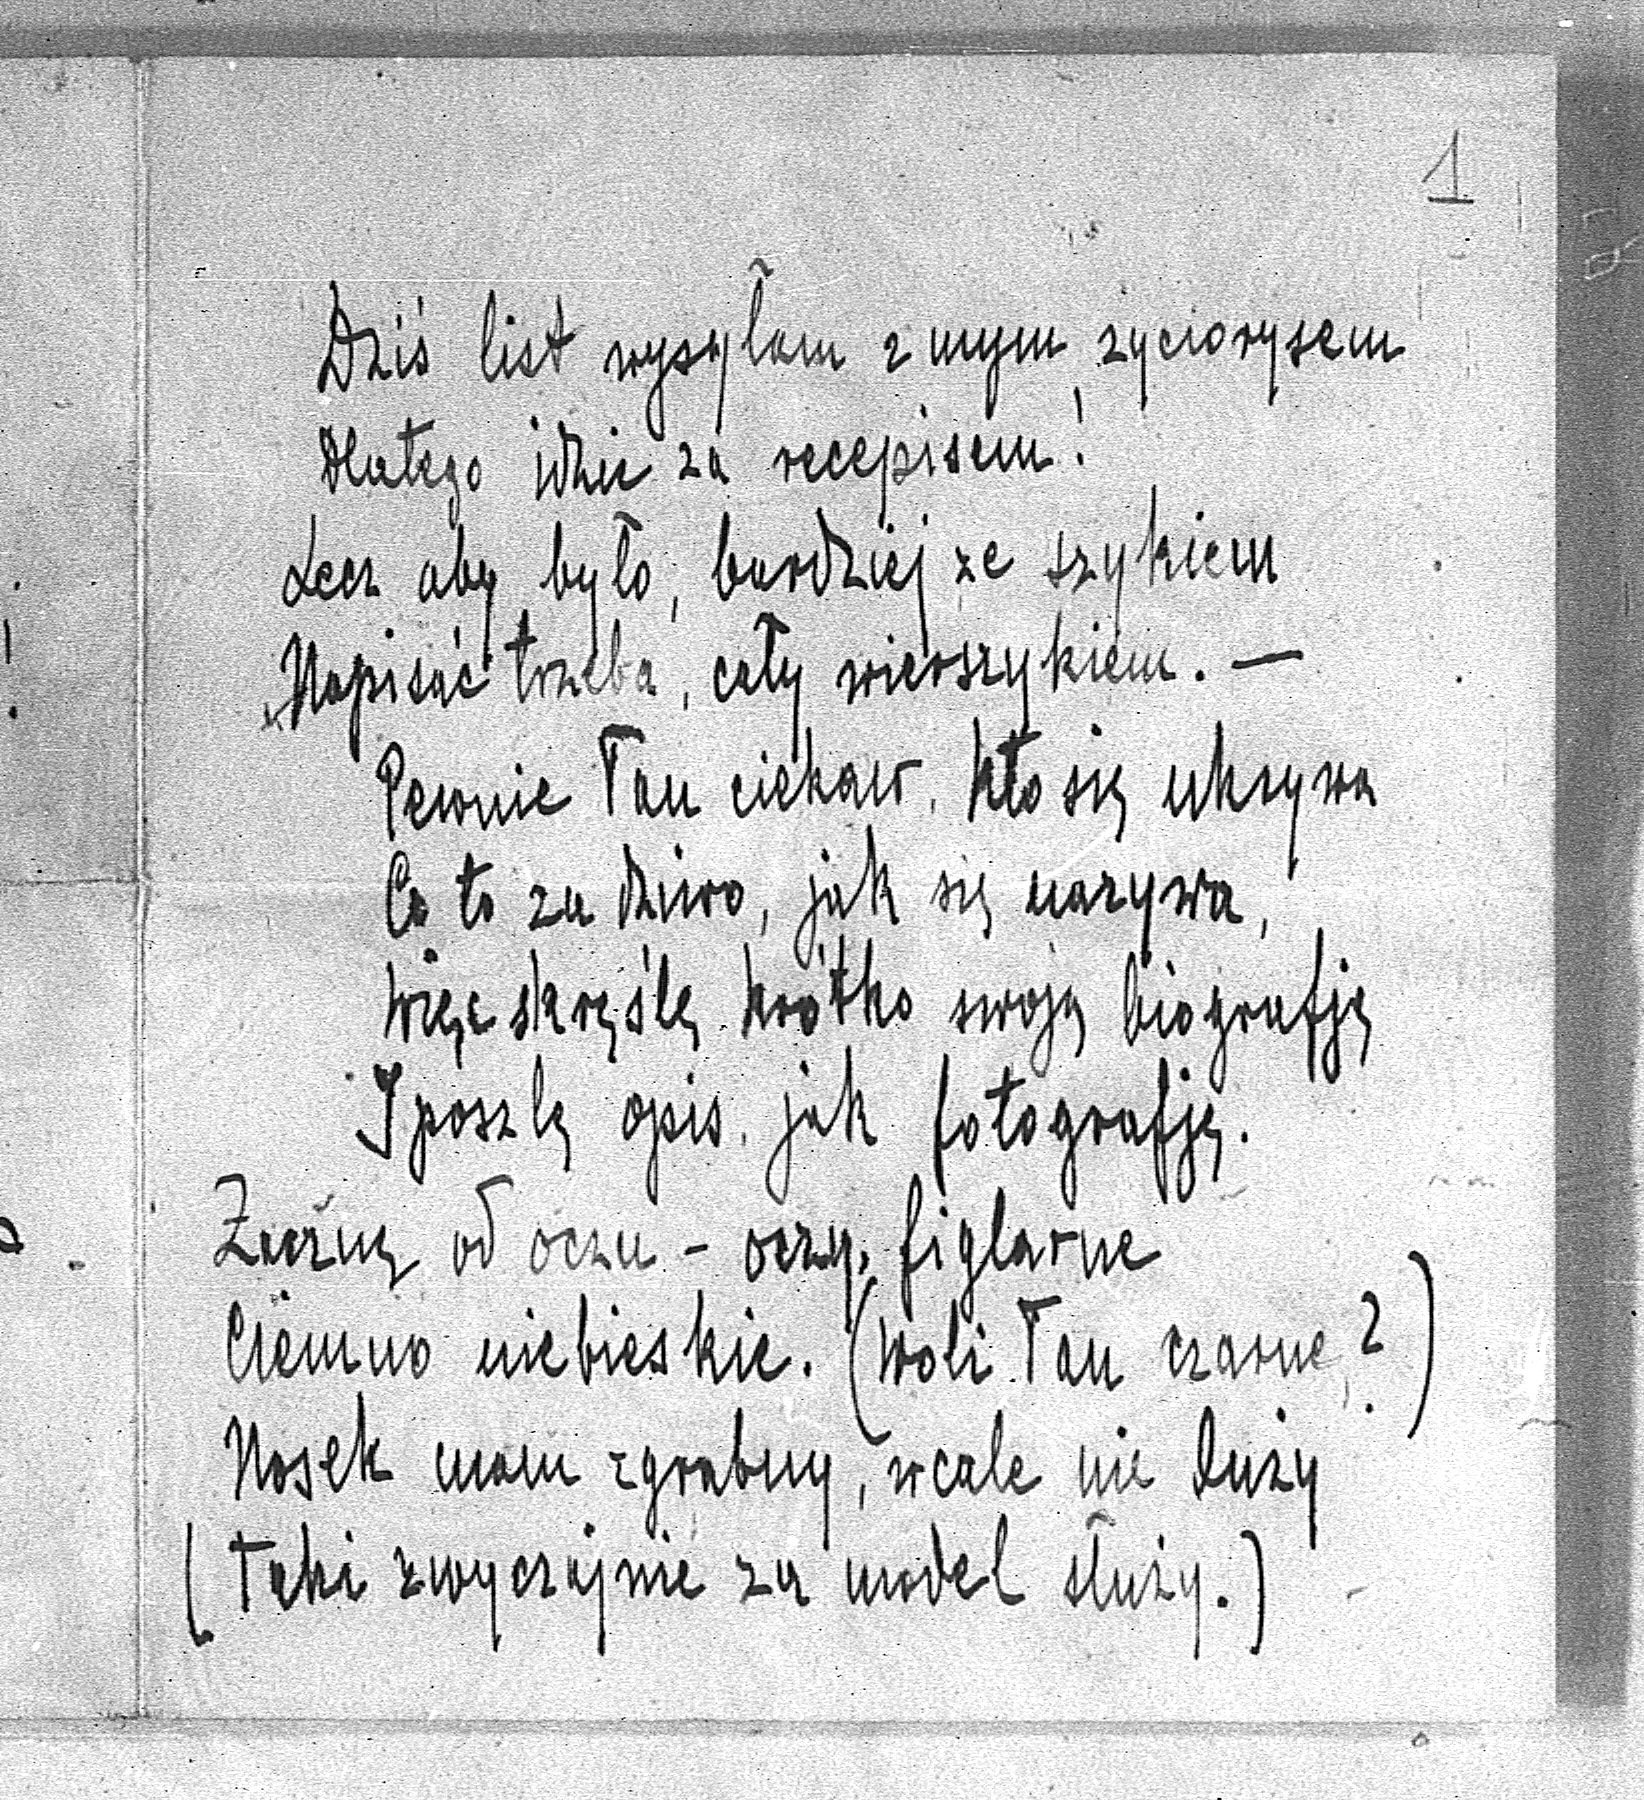 1
Dziś list wysyłam z mym życiorysem
Dlatego idzie za recepisem!
Lecz aby było, bardziej ze szykiem
Napisać trzeba, cały wierszykiem. —
Pewnie Pan ciekaw, kto się ukrywa
Co to za dziwo, jak się nazywa,
Więc skręślę krótko swoję biografję
I poszlę opis, jak fotografję.
Zacznę od oczu - oczy, figlarne
Ciemno niebieskie. (Woli Pan czarne?)
Nosek mam zgrabny, wcale nie duży
(Taki zwyczajnie za model służy.)